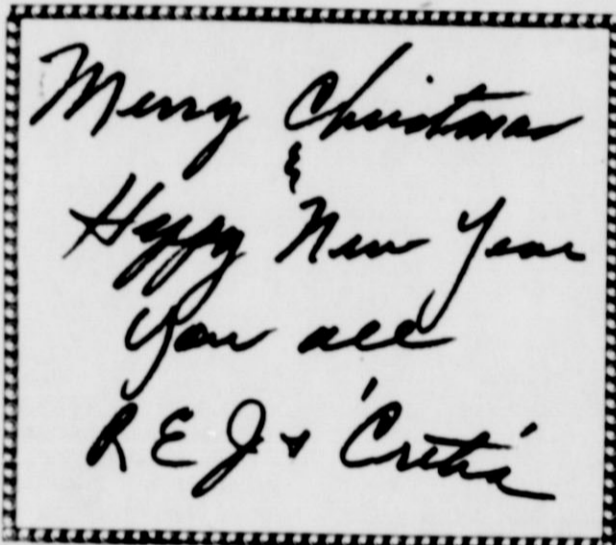 Merry Christmas
&
Happy New Year
You all
R E J + 'Cretia